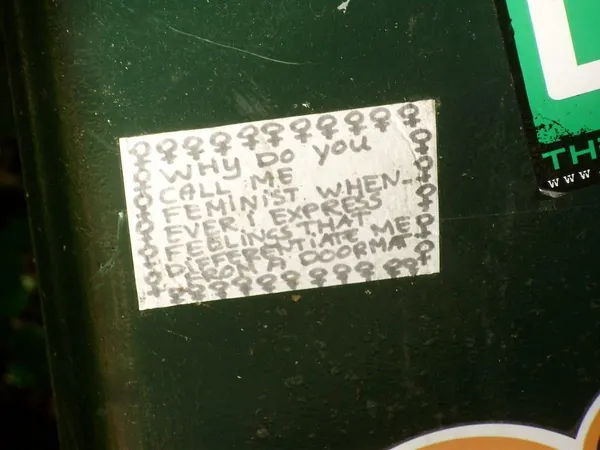 WHY DO YOU
CALL ME
FEMINIST WHEN-
EVER I EXPRESS
FEELINGS THAT
DIFFERENTIATE ME
FROM A DOORMAT
TH
WW